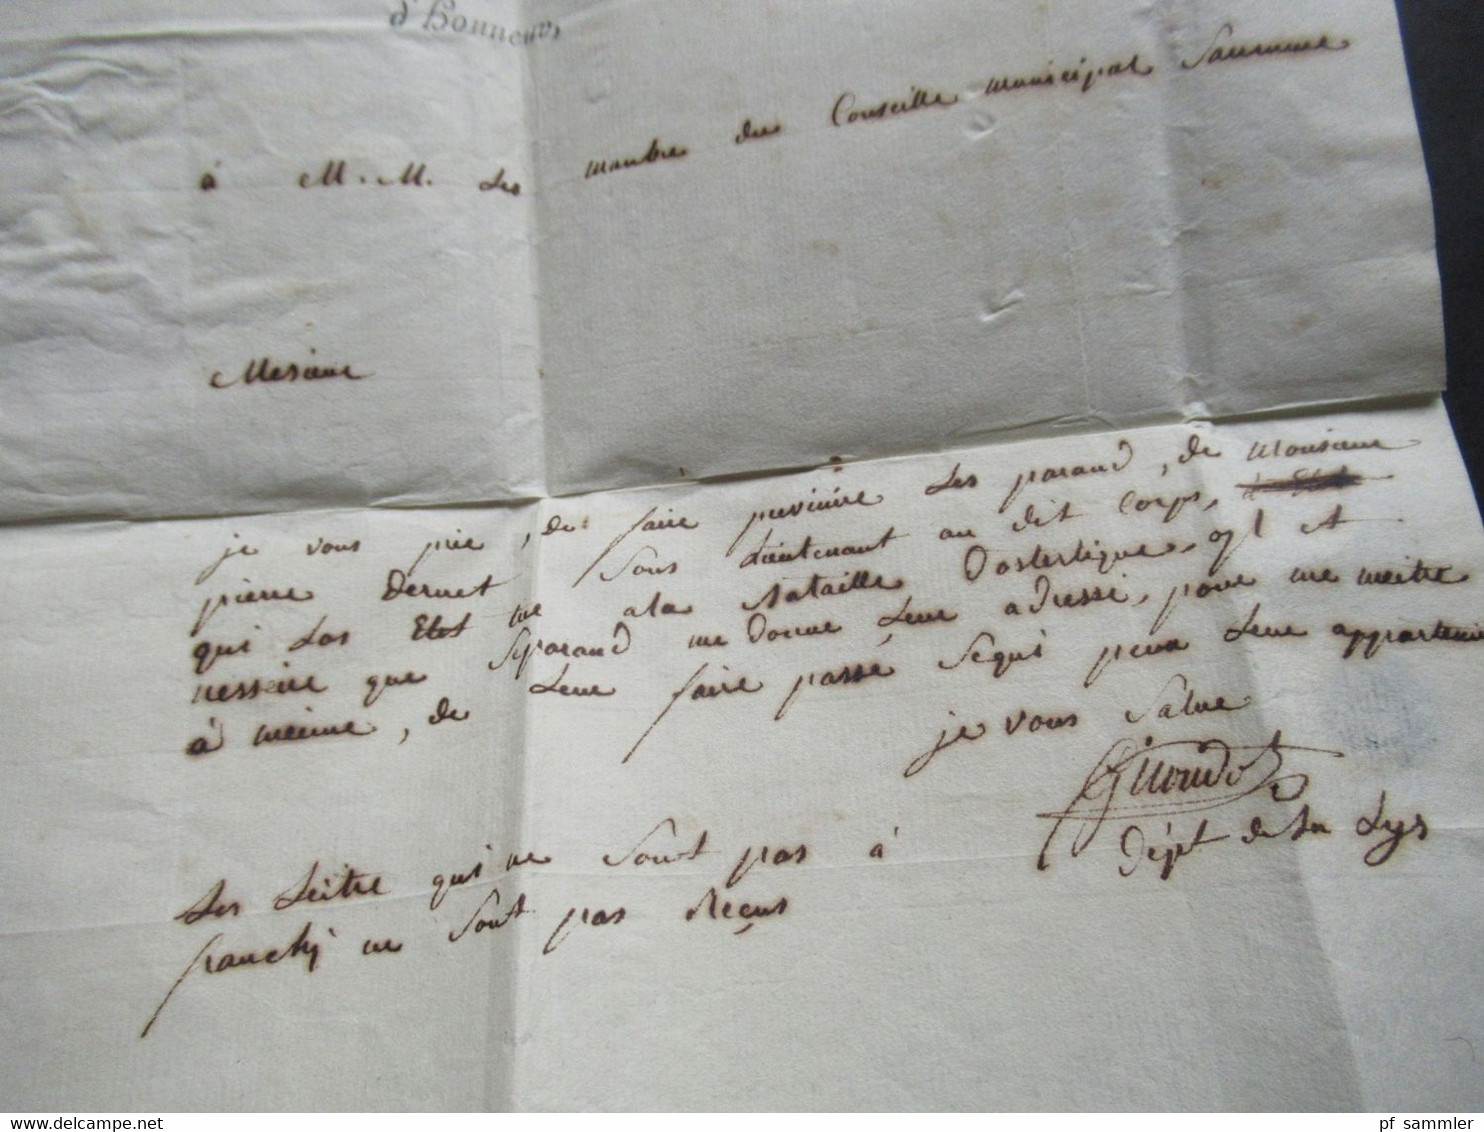 d'Honneur
à M. M. Les manbre du Conseille municipal Saumure
Mesieur
je vous prie, de faire previnire Les parand, de Monsieur
pierre Dernet Sous Lieutenant au dit Corps,
qui Las Etet me a la Bataille Dosterlique, ojl et
nessaire que Separand me Donne Leur adresse, pour me meitre
à meime, de Leur faire passé Sequi peux Leur appartenir
je vous Salue
Girondo
Dépt de La Lys
Les Leitre qui ne Sont pas à
franchj ne Sont pas Reçus
pf_sammler